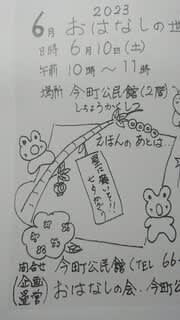 2023
6月 おはなしの世
日時 6月10日(土)
午前 10時～11時
場所 今町公民館(2階)
えほんのあとは…
星に願いを!!
七夕かざり
問合せ 今町公民館(TEL 66-
(企画
運営) おはなしの会.今町公